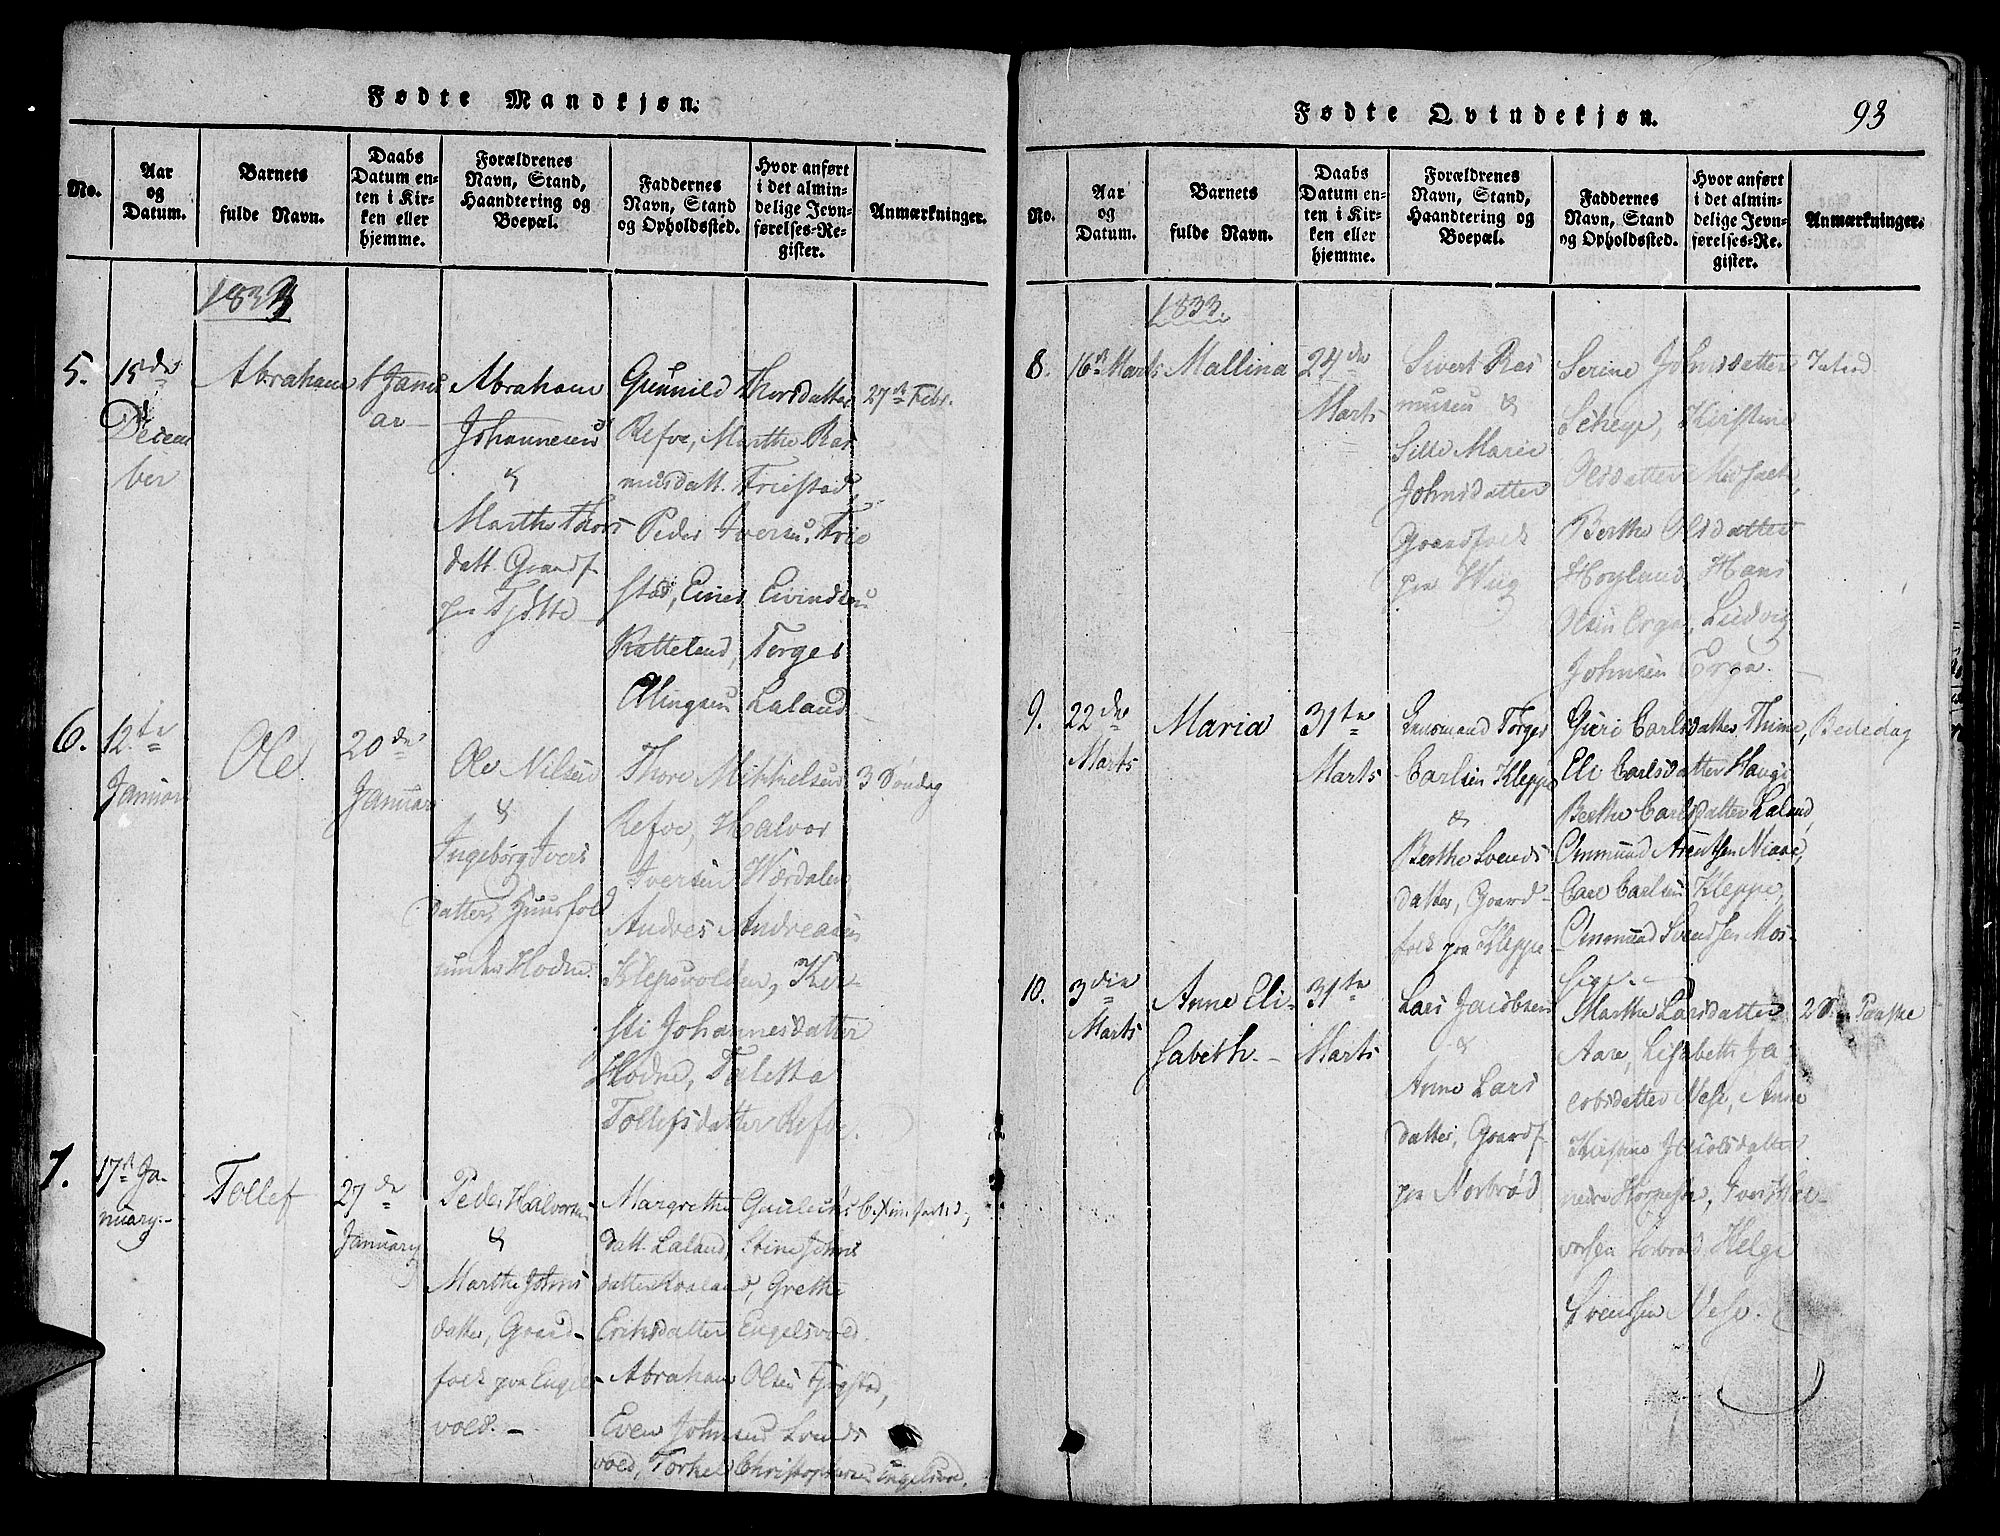 Fødte Mandkjøn.
No.
Aar
og
Datum.
Barnets
fulde Navn.
Daabs
Datum en-
ten i Kir-
ken eller
hjemme.
Forældrenes
Navn, Stand,
Haandtering og
Boepæl.
Faddernes
Navn, Stand
og Opholdssted.
Hvor anført
i det almin-
delige Jevn-
førelses-Re-
gister.
Anmærkninger.
1833
5.
15de
Decem
ber
Abraham
1 Janu
ar
Abraham
Johannesen
&
Marthe Thors
datt. Gaardf.
paa Tjøtte
Gunnild Thorsdatter
Refve, Marthe Ras
musdatt. Friestad,
Peder Iversen, Frie
stad, Einer Eivindsen
Katteland, Torger
Ellingsen Laland
27de Febr.
6.
12te
Januar
Ole
20de
Januar
Ole Nilsen
&
Ingeborg Ivers
datter, Huusfolk
under Hodne.
Thore Mikkelsen
Refve, Halvor
Iversen Wærdalen
Andres Andreasen
Klepsvolden, Kir-
sti Johannesdatter
Hodne, Taletta
Tollefsdatter Refve.
3 Søndag
7.
17de Ja-
nuary.
Tollef
27de
January
Peder Halvorsen
&
Marthe Johns
datter, Gaard-
folk paa Engel
vold.
Margrethe
datt. Laland, Stine Johns
datter Kvaland, Grethe
Eriksdatter Engelsvold.
Abraham Olsen Tjøgstad,
Even Johnsen Svends
vold, Torkel Christophersen Engelsvol.
Fødte Qvindekjøn.
93
No.
Aar
og
Datum.
Barnets
fulde Navn.
Daabs
Datum en-
ten i Kir-
ken eller
hjemme.
Forældrenes
Navn, Stand,
Haandtering og
Boepæl.
Faddernes
Navn, Stand
og Opholdssted.
Hvor anført
i det almin-
delige Jevn-
førelses-Re-
gister.
Anmærkninger.
1833.
8.
16de Marts
Mallina
24de
Marts
Sivert Ras
musen &
Sille Marie
Johnsdatter
Gaardfolk
paa Wiig
Serine Johnsdatter
Scheye, Kirstine
Olsdatter
Berthe Olsdatter
Hoyland, Hans
Olsen Erga, Ludvig
Johnsen Erga.
9.
22de
Marts
Maria
31te
Marts
Lensmand Torger
Carlsen Kleppe
&
Berthe Svends
datter, Gaard-
folk paa Kleppe
Guri Carlsdatter Thime,
Eli Carlsdatter Haugi
Berthe Carlsdatter Laland,
Ommund Arentsen Niaae,
Carl Carlsen Kleppe,
Ommund Svendsen Mos-
sige.
Bededag
10.
3die
Marts
Anne Eli-
sabeth.
31te
Marts
Lars Jacobsen
&
Anne Lars
datter, Gaardf
paa Norbrød
Marthe Larsdatter
Aare, Lisabeth Ja-
cobsdatter Nese, Anne
Kirstine
Iver Hal-
vorsen Sorbrød Helge
Svendsen Nese.
2 D. Paaske